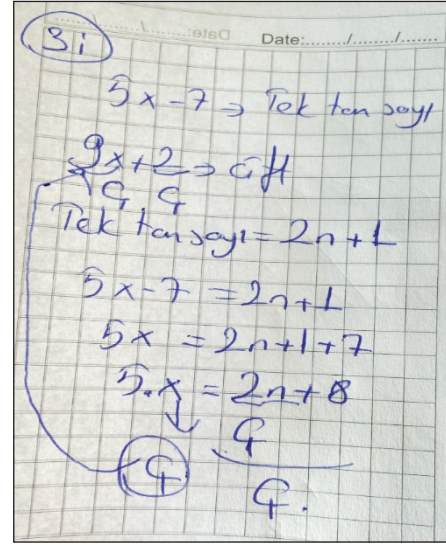 Date:......./......./.......
3i
5x-7 → Tek tam sayı
9x+2 → Çift
Ç Ç
Tek tam sayı = 2n+1
5x-7 = 2n+1
5x = 2n+1+7
5.x = 2n+8
Ç
Ç Ç.